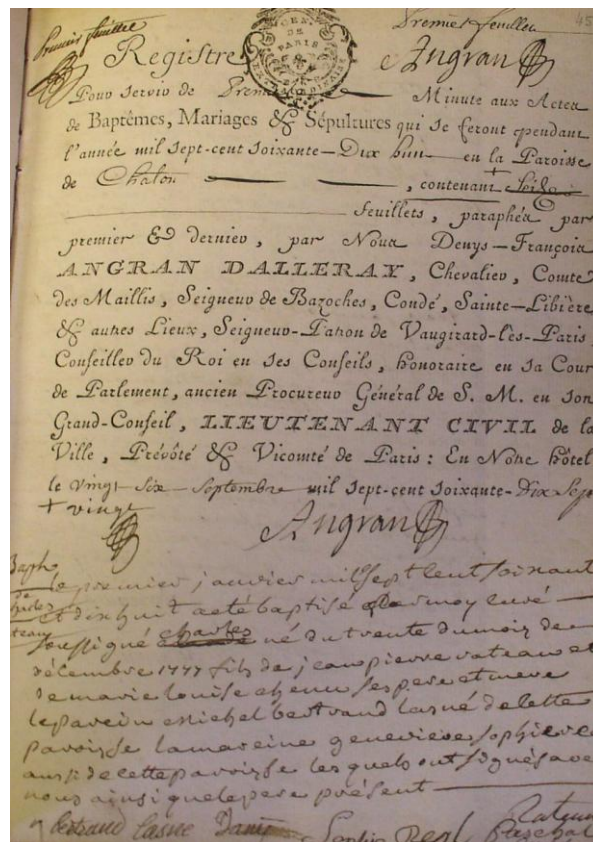 Premier feuillet
Premier feuillet 45
GEN.
DE
PARIS
Registre
Angran
Pour servir de Premiere Minute aux Actes
de Baptêmes, Mariages & Sépultures qui se feront pendant
l'année mil sept-cent soixante-Dix huit en la Paroisse
de Chalon , contenant
feuillets, paraphés par
premier & dernier, par Nous Denys-François
ANGRAN DALLERAY, Chevalier, Comte
des Maillis, Seigneur de Bazoches, Condé, Sainte-Libière
& autres Lieux, Seigneur-Patron de Vaugirard-lès-Paris,
Conseiller du Roi en ses Conseils, honoraire en sa Cour
de Parlement, ancien Procureur Général de S. M. en son
Grand-Conseil, LIEUTENANT CIVIL de la
Ville, Prévôté & Vicomté de Paris : En Notre hôtel
le vingt Six Septembre mil sept-cent soixante-Dix Sept
+ vingt
Angran
Bapt
le premier janvier mil sept cent soixant
et dix huit a été baptisé par moy curé
soussigné charles né du trente du mois de
décembre 1777 fils de jean pierre rateau et
de marie louise chenu ses pere et mere
le parein michel bertrand lasné de cette
paroisse la mareine genevieve sophie
aussi de cette paroisse lesquels ont signés avec
nous ainsi que le pere présent
bertrand lasne Sophie Real